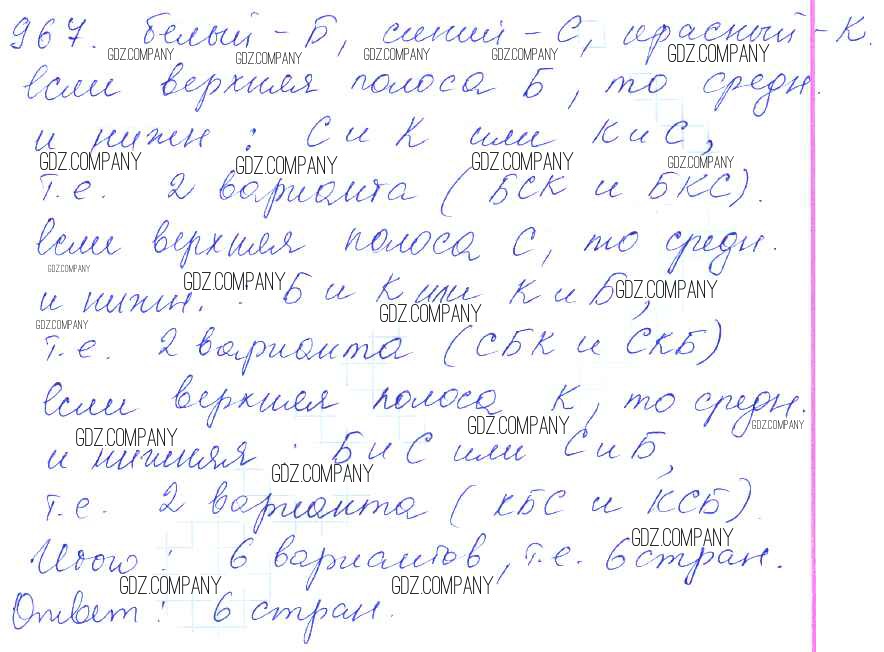 967. белый - Б, синий - С, красный - К.
GDZ.COMPANY GDZ.COMPANY GDZ.COMPANY GDZ.COMPANY GDZ.COMPANY
если верхняя полоса Б, то средн.
и нижн : С и К или К и С,
GDZ.COMPANY GDZ.COMPANY GDZ.COMPANY GDZ.COMPANY
т.е. 2 варианта (БСК и БКС).
если верхняя полоса С, то средн.
GDZ.COMPANY
и нижн. : Б и К или К и Б,
GDZ.COMPANY GDZ.COMPANY
GDZ.COMPANY GDZ.COMPANY
т.е. 2 варианта (СБК и СКБ)
если верхняя полоса К, то средн.
GDZ.COMPANY GDZ.COMPANY GDZ.COMPANY
и нижняя : Б и С или С и Б,
GDZ.COMPANY
т.е. 2 варианта (КБС и КСБ).
GDZ.COMPANY
Итого : 6 вариантов, т.е. 6 стран.
GDZ.COMPANY GDZ.COMPANY
Ответ : 6 стран.